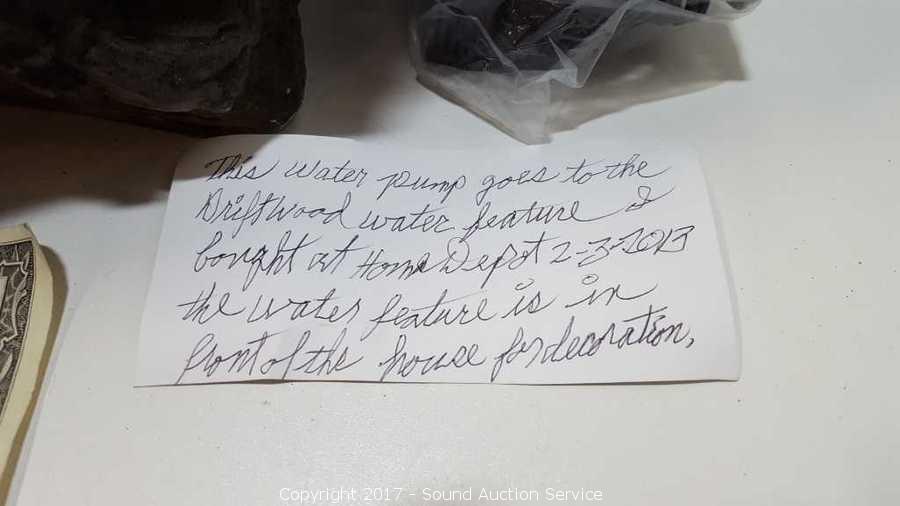 This water pump goes to the
Driftwood water feature I
bought at Home Depot 2-3-2013
the water feature is in
front of the house for decoration,
Copyright 2017 - Sound Auction Service